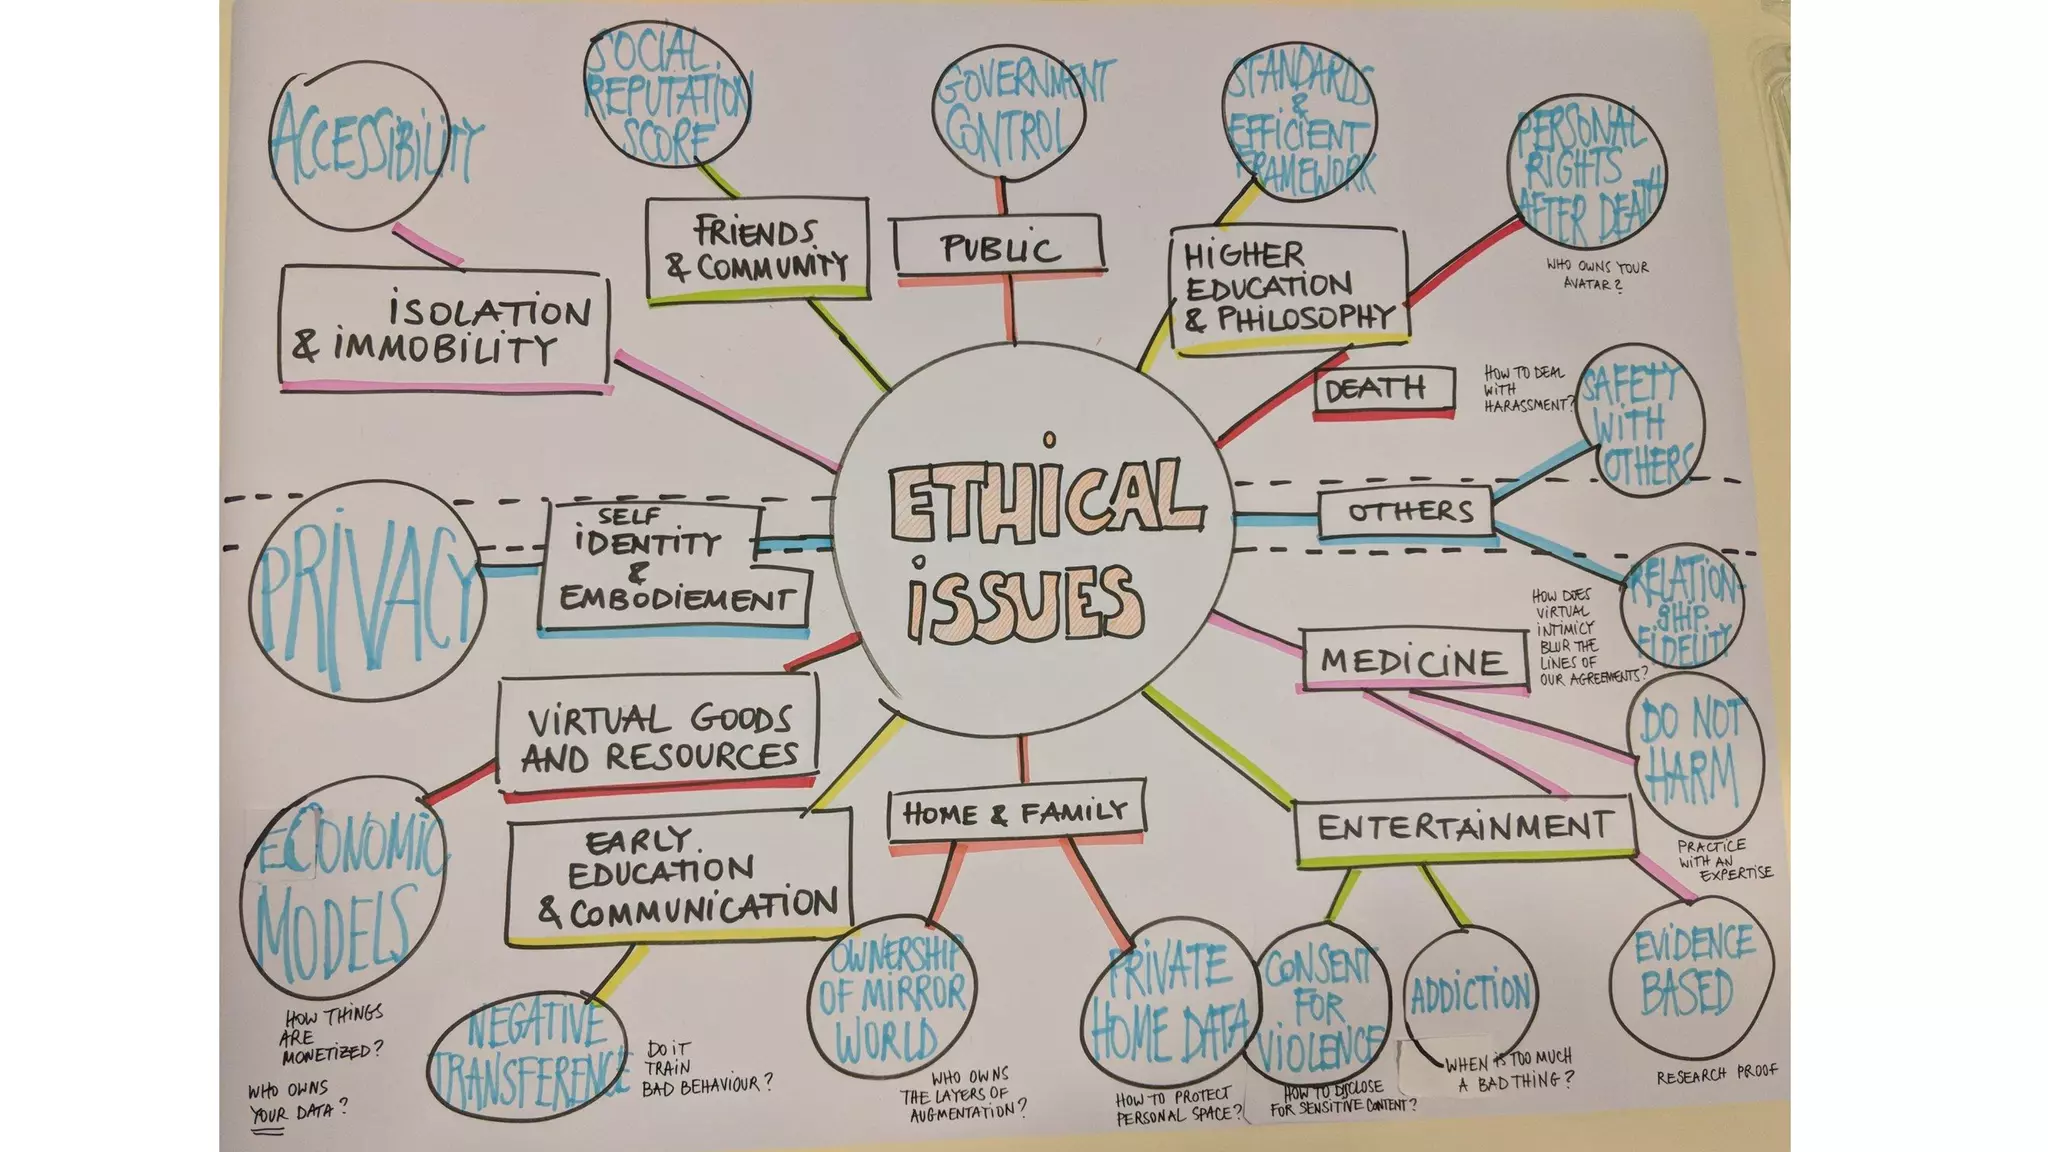 ACCESSIBILITY
SOCIAL
REPUTATION
SCORE
GOVERNMENT
CONTROL
STANDARDS
&
EFFICIENT
FRAMEWORK
PERSONAL
RIGHTS
AFTER DEATH
WHO OWNS YOUR
AVATAR?
ISOLATION
& IMMOBILITY
FRIENDS
& COMMUNITY
PUBLIC
HIGHER
EDUCATION
& PHILOSOPHY
DEATH
HOW TO DEAL
WITH
HARASSMENT?
SAFETY
WITH
OTHERS
PRIVACY
SELF
IDENTITY
&
EMBODIEMENT
ETHICAL
ISSUES
OTHERS
RELATION-
SHIP
FIDELITY
HOW DOES
VIRTUAL
INTIMICY
BLUR THE
LINES OF
OUR AGREEMENTS?
MEDICINE
DO NOT
HARM
PRACTICE
WITH AN
EXPERTISE
VIRTUAL GOODS
AND RESOURCES
ECONOMIC
MODELS
HOW THINGS
ARE
MONETIZED?
WHO OWNS
YOUR DATA?
EARLY
EDUCATION
& COMMUNICATION
NEGATIVE
TRANSFERENCE
DO IT
TRAIN
BAD BEHAVIOUR?
HOME & FAMILY
OWNERSHIP
OF MIRROR
WORLD
WHO OWNS
THE LAYERS OF
AUGMENTATION?
PRIVATE
HOME DATA
HOW TO PROTECT
PERSONAL SPACE?
ENTERTAINMENT
CONSENT
FOR
VIOLENCE
HOW TO DISCLOSE
FOR SENSITIVE CONTENT?
ADDICTION
WHEN IS TOO MUCH
A BAD THING?
EVIDENCE
BASED
RESEARCH PROOF